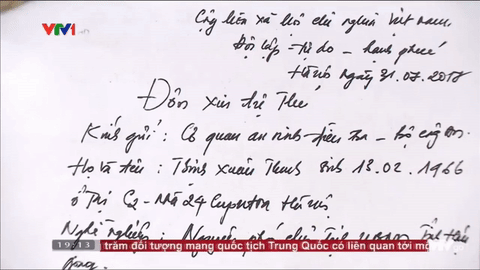 VTV1
Cộng hòa xã hội chủ nghĩa Việt Nam
Độc lập - tự do - hạnh phúc
Hà Nội ngày 31.07.2017
Đơn xin tự thú
Kính gửi: Cơ quan an ninh điều tra - Bộ công an.
Họ và tên: Trịnh Xuân Thanh sinh 13.02.1966
ở tại C2 - Nhà 24 Ciputra Hà Nội
Nghề nghiệp: Nguyên phó chủ tịch UBND tỉnh Hậu
Giang.
19:13 trăm đối tượng mang quốc tịch Trung Quốc có liên quan tới